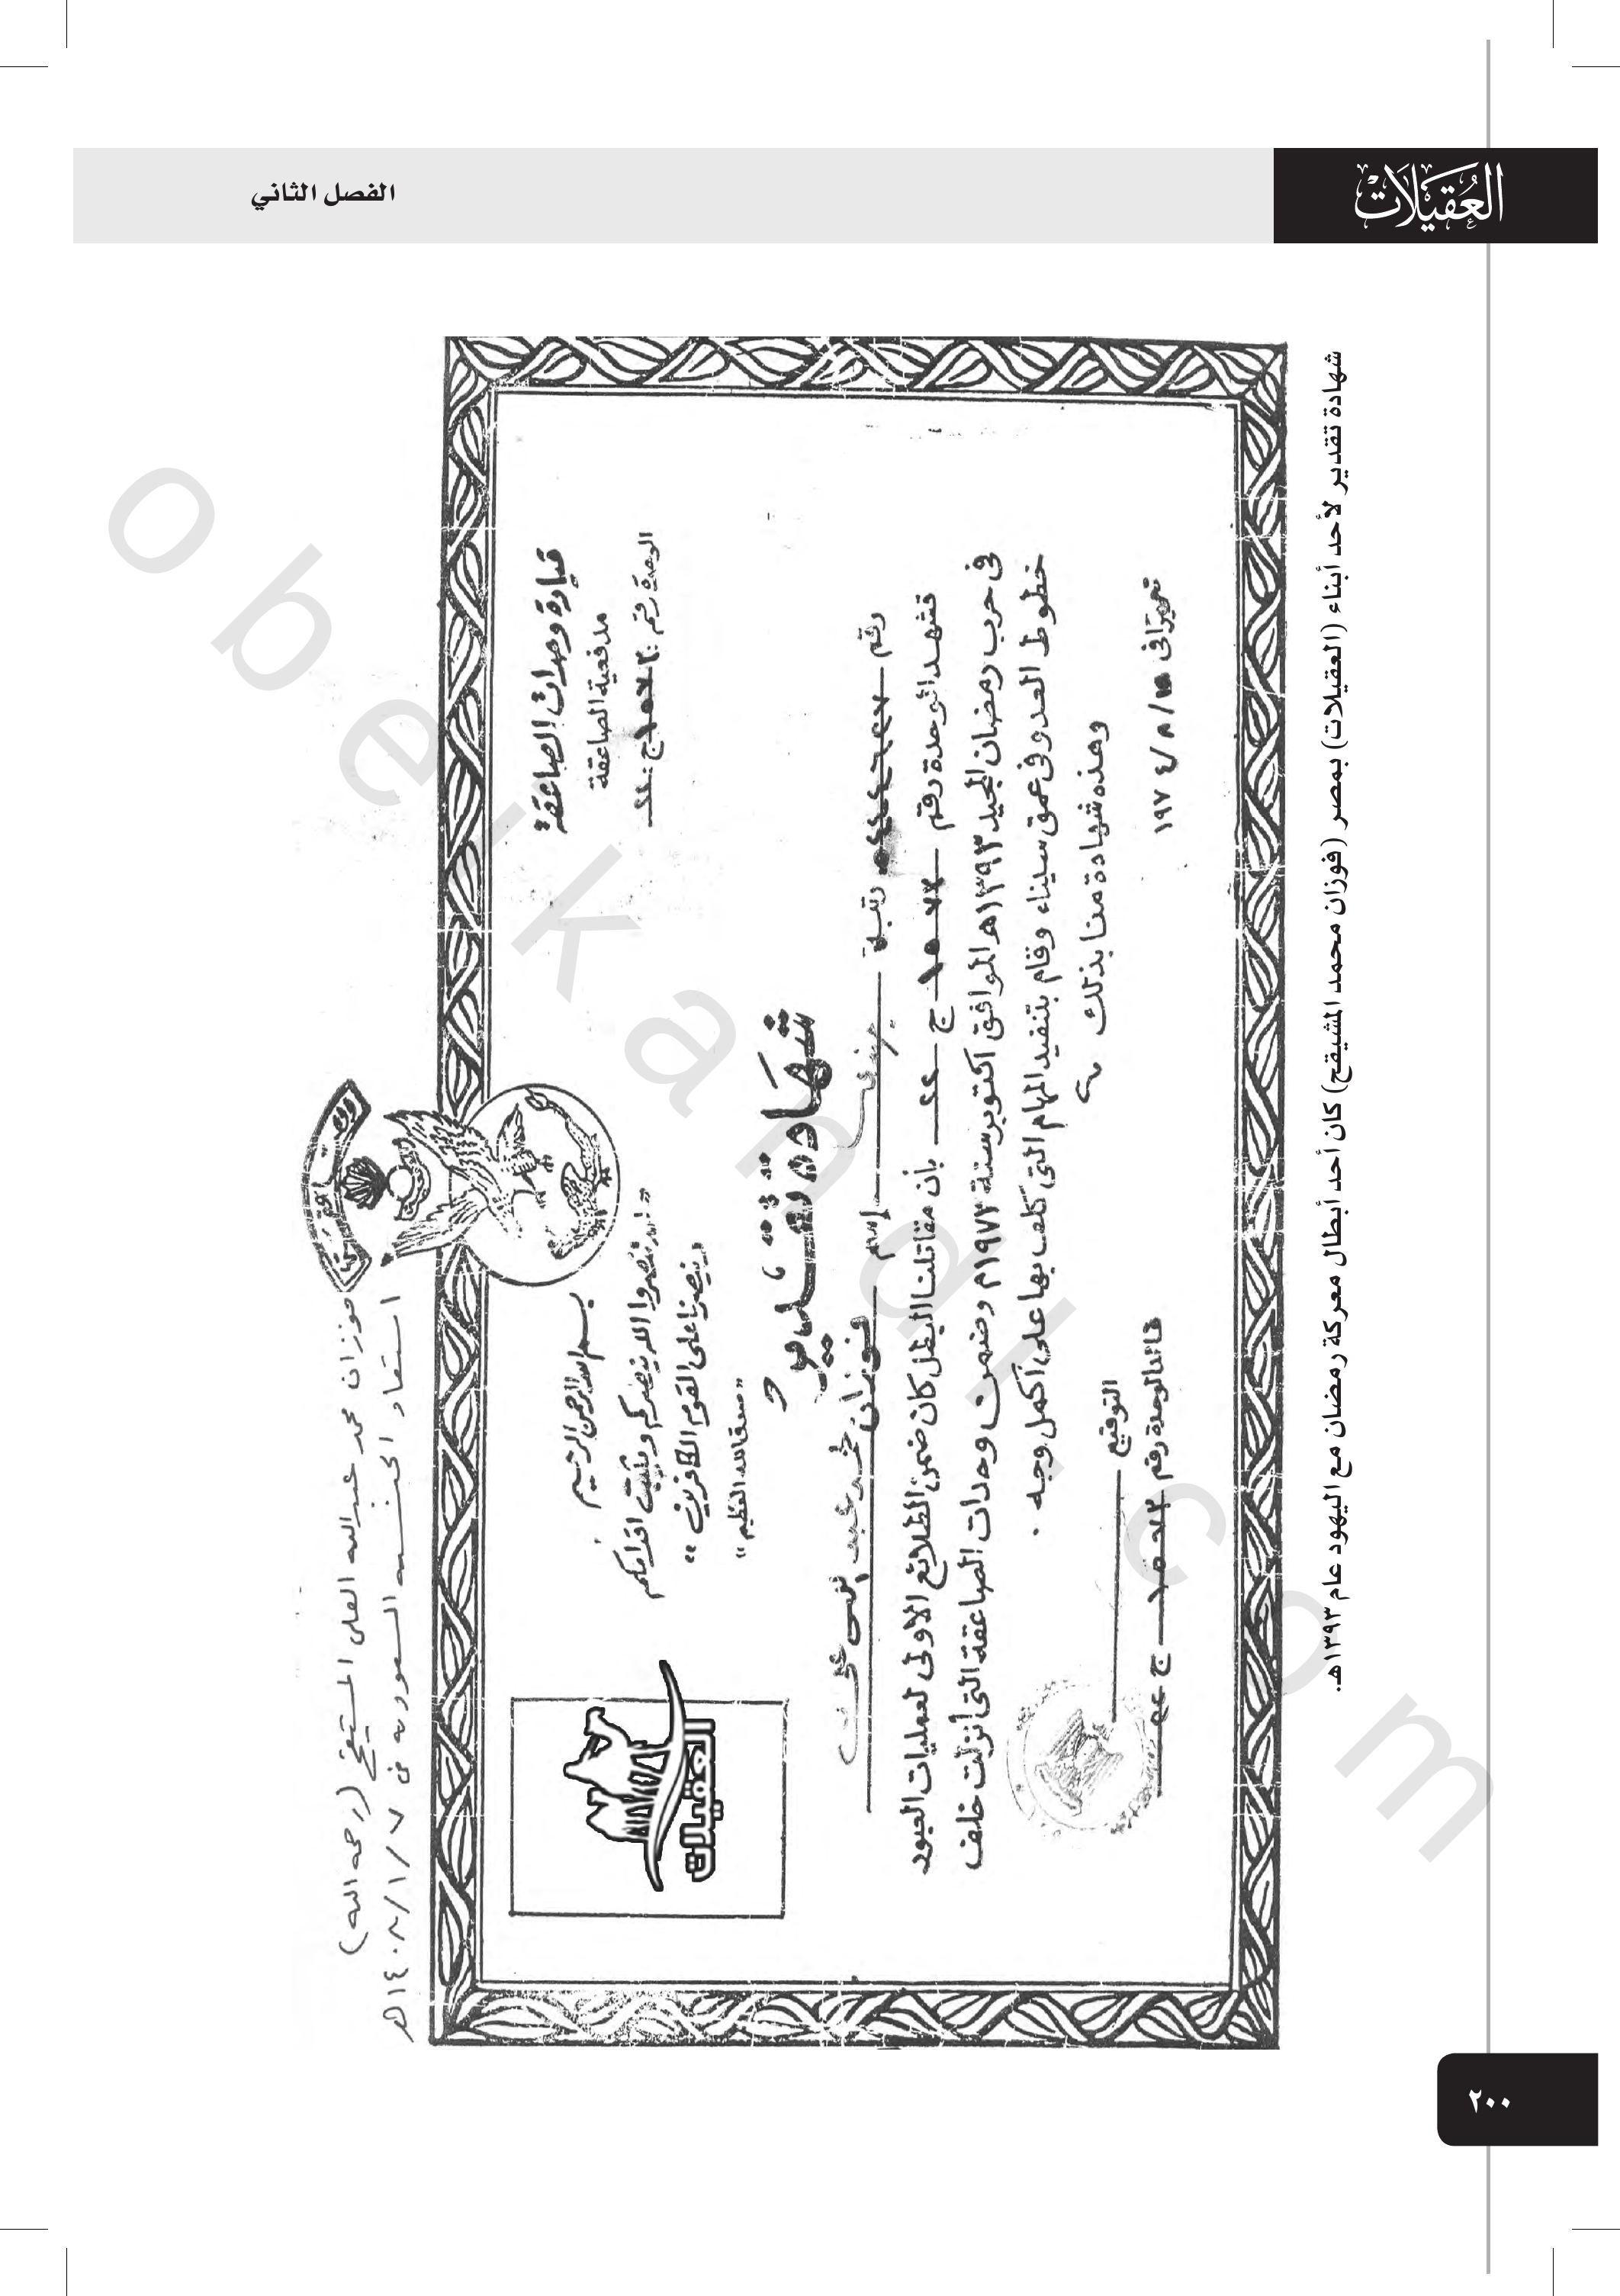 العقيلات
الفصل الثاني
فوزان محمد عبدالله العلي المشيقح (رحمه الله)
استعاد الجنسية السعودية في ١٤٠٨/١/٧هـ
قيادة وحدات الصاعقة
مدفعية الصاعقة
الوحدة رقم
بسم الله الرحمن الرحيم
"إن تنصروا الله ينصركم ويثبت اقدامكم
وينصرنا على القوم الكافرين"
"صدق الله العظيم"
العقيلات
شهادة تقدير
رقم رتبة إسم فوزان محمد عبد الله على
تشهد الوحدة رقم ج بأن مقاتلنا البطل كان ضمن الطلائع الاولى لعمليات العبور
فى حرب رمضان المجيد ١٣٩٣هـ الموافق اكتوبر سنة ١٩٧٣م وضمن وحدات الصاعقة التى أنزلت خلف
خطوط العدو فى عمق سيناء وقام بتنفيذ المهام التى كلف بها على أكمل وجه .
وهذه شهادة منا بذلك
تحريرا فى / ٨ / ١٩٧٤
التوقيع
قائد الوحدة رقم ج
شهادة تقدير لأحد أبناء (العقيلات) بمصر (فوزان محمد المشيقح) كان أحد أبطال معركة رمضان مع اليهود عام ١٣٩٣هـ.
٢٠٠
obeikandl.com